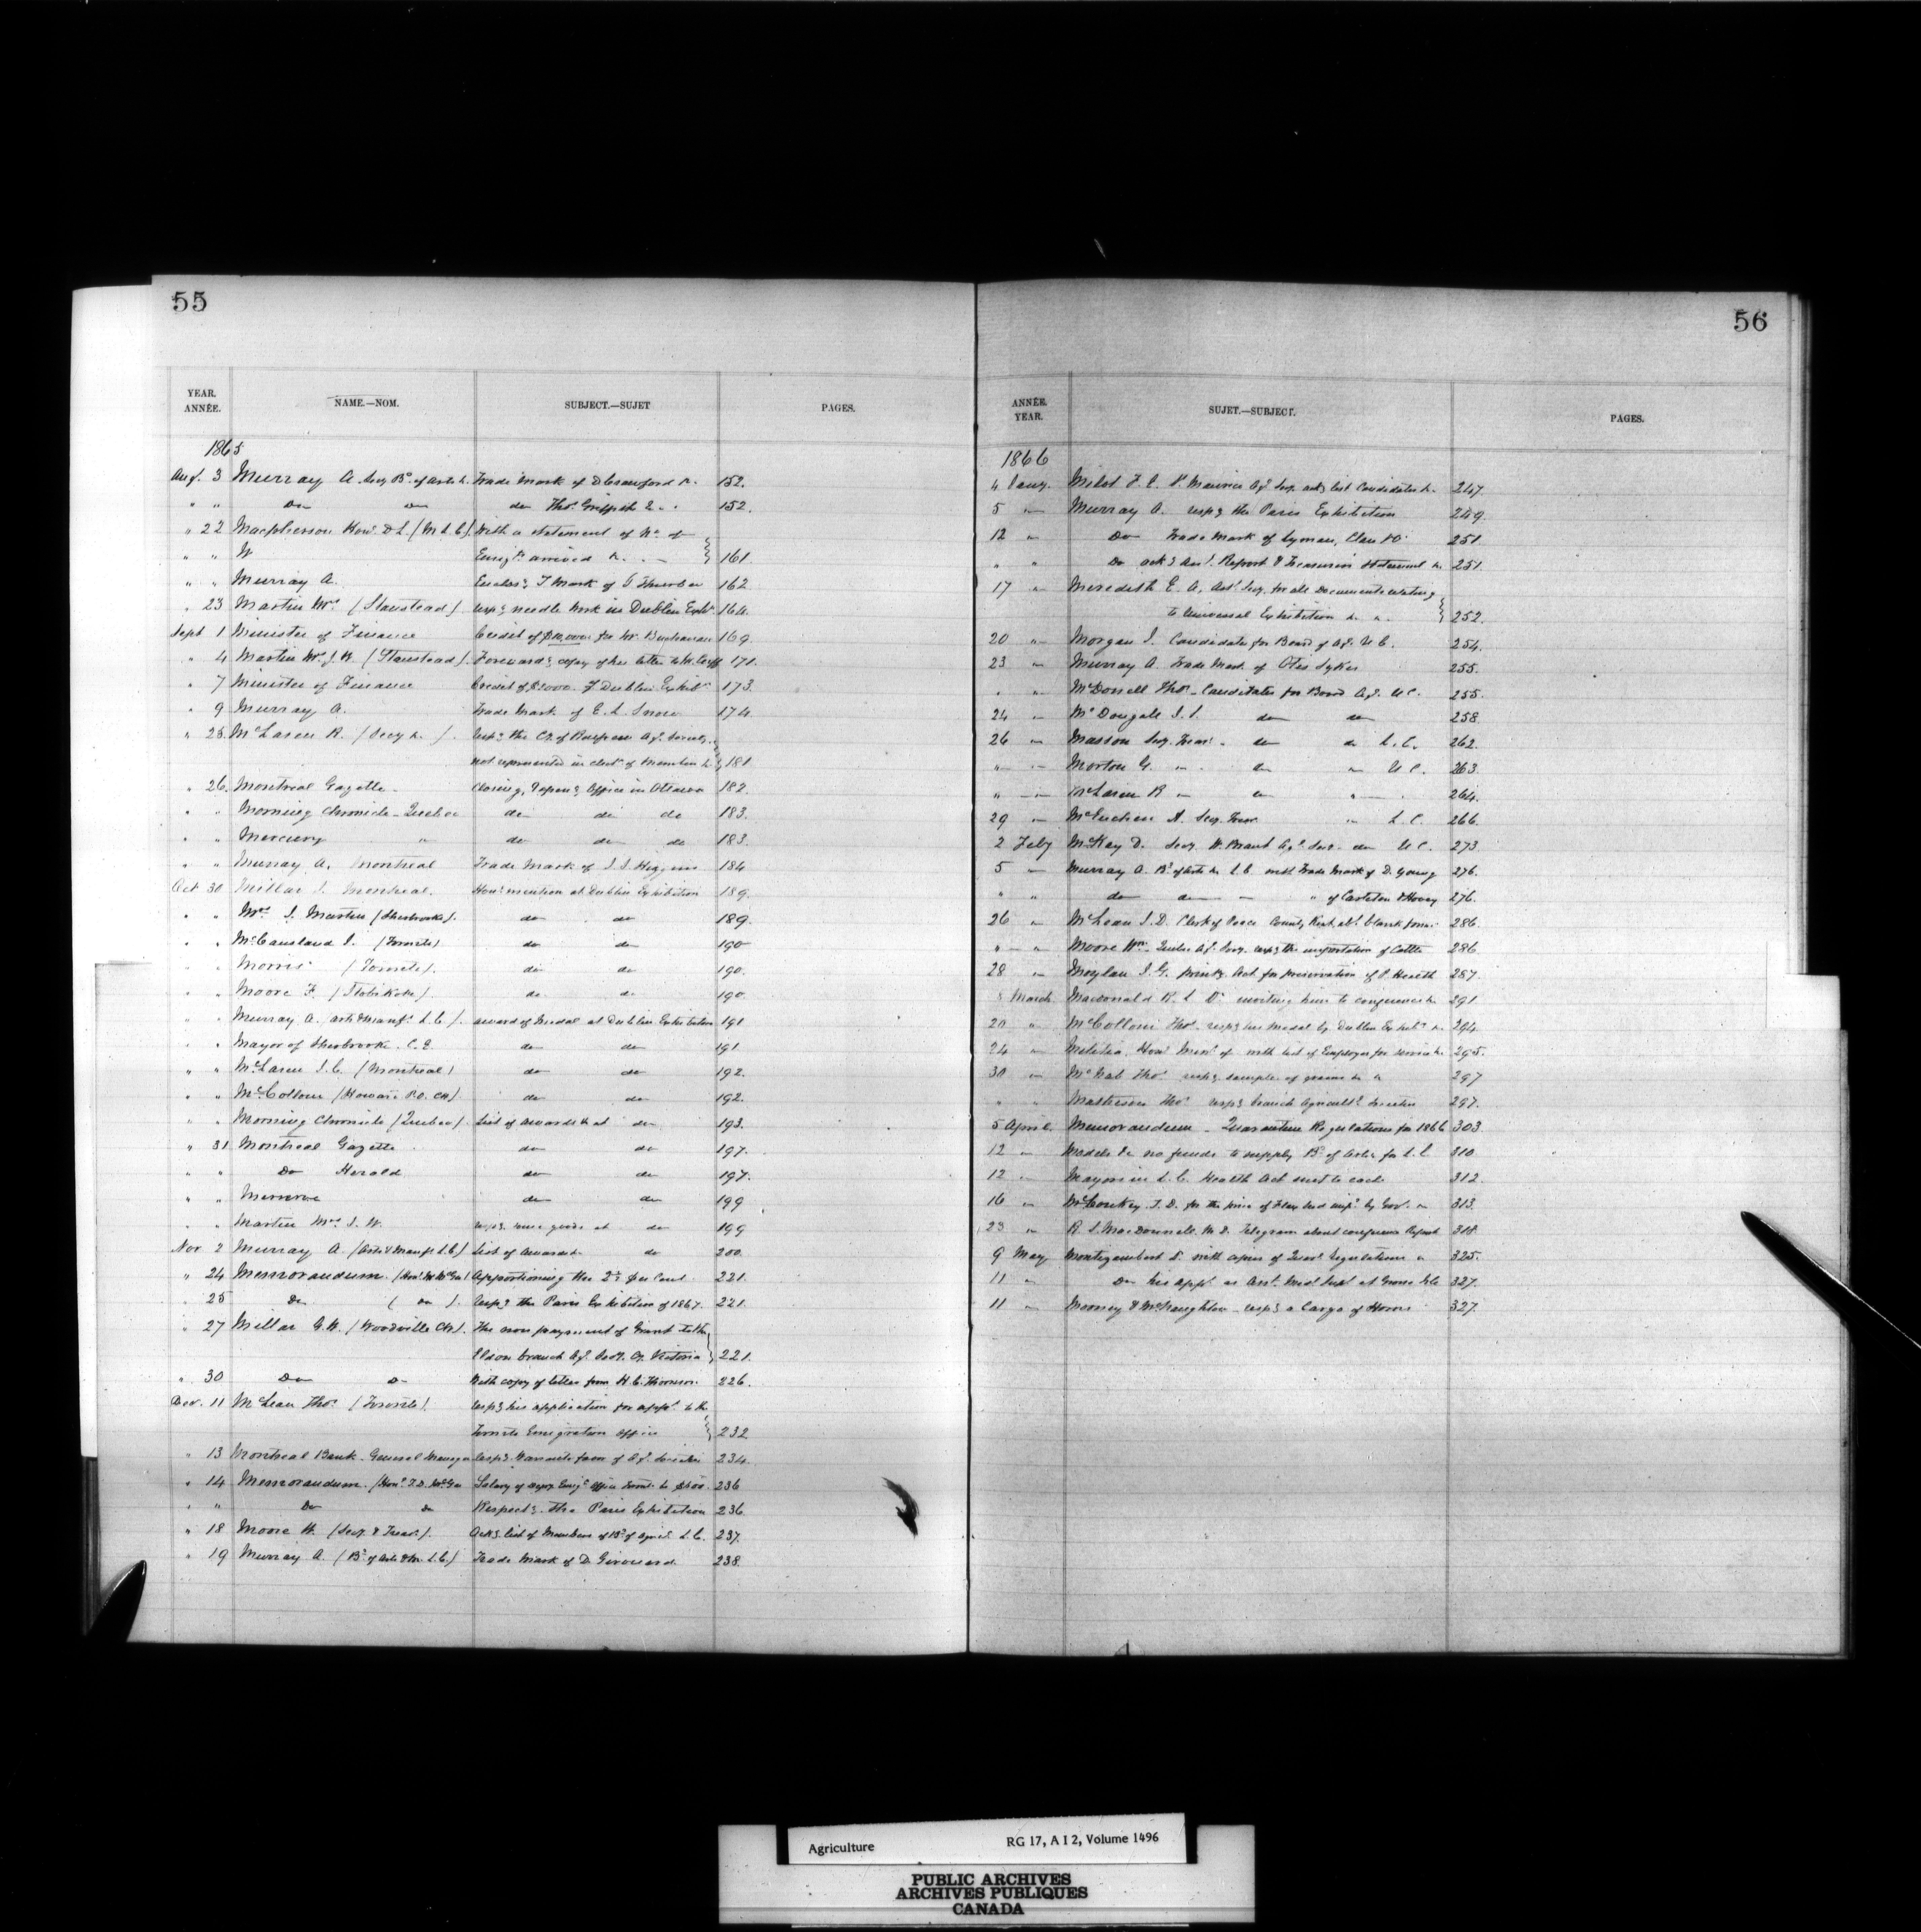 55
YEAR. ANNÉE. NAME.—NOM. SUBJECT.—SUJET PAGES.
1865
Aug. 3 Murray A Secy Bd. of Arts &. Trade Mark of D Crawford &. 152.
" " Do do do Thos. Griffith & . . 152.
" 22 Macpherson Honl. D L. (M L C). With a statement of No. of
" " W Emigts. arrived &. . — 161.
" " Murray A. T Mark of 162
" 23 Martin Mrs (Stanstead) respg needle work in Dublin Exhn. 164.
Sept 1 Minister of Finance Credit of $10,000 for Mr. Buchanan 169.
" 4 Martin Mrs J. W. (Stanstead). Forwardg copy of her letter to 171.
" 7 Minister of Finance Credit of $2000. Dublin Exhibn. 173.
" 9 Murray A. Trade Mark of E. L. Snow 174.
" 25. McLaren R. (Secy &. ). Respg the Co. of Ag. Society
not represented in elect. of Members L. 181
" 26. Montreal Gazette Closing, & openg Office in Ottawa 182.
" " Morning Chronicle - Quebec do do do 183.
" " Mercury " do do do 183.
" " Murray A. Montreal Trade Mark of J. S. Higgins 184
Oct 30 Millar J. Montreal. Hon. mention at Dublin Exhibition 189.
" " Mrs J. Martin (Sherbrooke). do do 189.
" " McCausland J. (Toronto) do do 190
" " Morris (Toronto). do do 190.
" " Moore F. (Etobikoke). do. do 190.
" " Murray A. (arts & Manfs. L. C.). award of Medal at Dublin Exhibition 191
" " Mayor of Sherbrooke. C. E. do do 191.
" " McLaren J. C. (Montreal) do do 192.
" " McCollom (Howard P.O. CW) do do 192.
" " Morning Chronicle (Quebec). List of awards & at do 193.
" 31 Montreal Gazette do do 197.
" " Do Herald do do 197.
" " Minerve do do 199
" " Martin Mrs J. W. respg some goods at do 199
Nov. 2 Murray A. (Arts & Manufs L.C.) List of Awards do 200.
" 24 Memorandum (Honl. McGee) Apportioning the 2½ per Cent 221.
" 25 Do ( Do ). respg the Paris Exhibition of 1867. 221.
" 27 Millar G. W. (Woodville CW). The non payment of Grant to the
Eldon branch Ag. Socy. Co. Victoria 221.
" 30 Do Do With copy of letter from H. C. Thomson 226.
Dec. 11 McLean Thos. (Toronto). respg his application for appt. to the
Toronto Emigration Office 232
" 13 Montreal Bank - General Manager respg Warrants from of Ag. Societies 234.
" 14 Memorandum. (Honl. T. D. McGee Salary of Emign. Office Toront. to $600. 236
" " Do Do Respectg. the Paris Exhibition 236
" 18 Moore H. (Secy. & Treas.). Ackg list of Members of Bd. of Agricl. L. C. 237.
" 19 Murray A. (Bd. of Arts & M. L. C.) Trade Mark of D. Girouard. 238.
56
ANNÉE. YEAR. SUJET.—SUBJECT. PAGES.
1866
4 Jany. Milot F. C. St. Maurice Ag. Socy. ackg list Candidates &. 247.
5 " Murray A. respg the Paris Exhibition 249.
12 " Do Trade Mark of Lyman, Clare & Co. 251
" " Do ackg Anl. Report & Treasurers Statement &. 251.
17 " Meredith E. A. Asst. Secy. for all Documents relating
to Universal Exhibition &. ". 252.
20 " Morgan J. Candidate for Board of Ag. U C. 254.
23 " Murray A. Trade Mark of Otis Sykes 255.
" " McDonell Thos. Candidates for Board Ag. U.C. 255.
24 " McDougall J. S. do do 258.
26 " Masson Secy. Treas. do do L. C. 262.
" " Morton G. " do " U C. 263.
" " McLaren R " do " 264.
29 " McEachen A. Secy. Treas " L. C. 266.
2 Feby McKay D. Secy. W. Brant Ag. Socy. do U C. 273
5 " Murray A. Bd. of arts &. L C with Trade Mark of D. Young 276.
" do do " of Carleton & Hovey 276.
26 " McLean J. D. Clerk of Peace County Kent, abt. blank forms 286
" " Moore Wm. Quebec Ag. Socy. respg the importation of Cattle 286
28 " Moylan J. G. printg. Act for preservation of P. Health 287.
March Macdonald R. L. Dr. inviting him to conference &. 291
20 " McCollom Thos. respg his Medal by Dublin Exhibn. &. 294.
24 " Militia, Honl. Minr. of with list of Employes for service &. 295.
30 " McNab Thos. respg sample of grains &. " 297
" " Matheson Thos. respg branch Agricultl. Societies 297.
5 April. Memorandum - Quarantine Regulations for 1866 303.
12 " Models &. no funds to supply Bd. of Arts for L. C. 310
12 " Mayors in L. C. Health Act sent to each 312.
16 " McConkey T. D. for the price of Flax Seed impd. by Gov. " 313.
23 " R. L. MacDonnell M. D. Telegram about conference Report 318.
9 May Montizambert Dr. with copies of Quar. regulations " 325.
11 " Do his appt. as Asst. Medl. Supt. at Grosse Isle 327.
11 " Mooney & McNaughton respg a Cargo of Horns 327.
Agriculture RG 17, A I 2, Volume 1496
PUBLIC ARCHIVES
ARCHIVES PUBLIQUES
CANADA